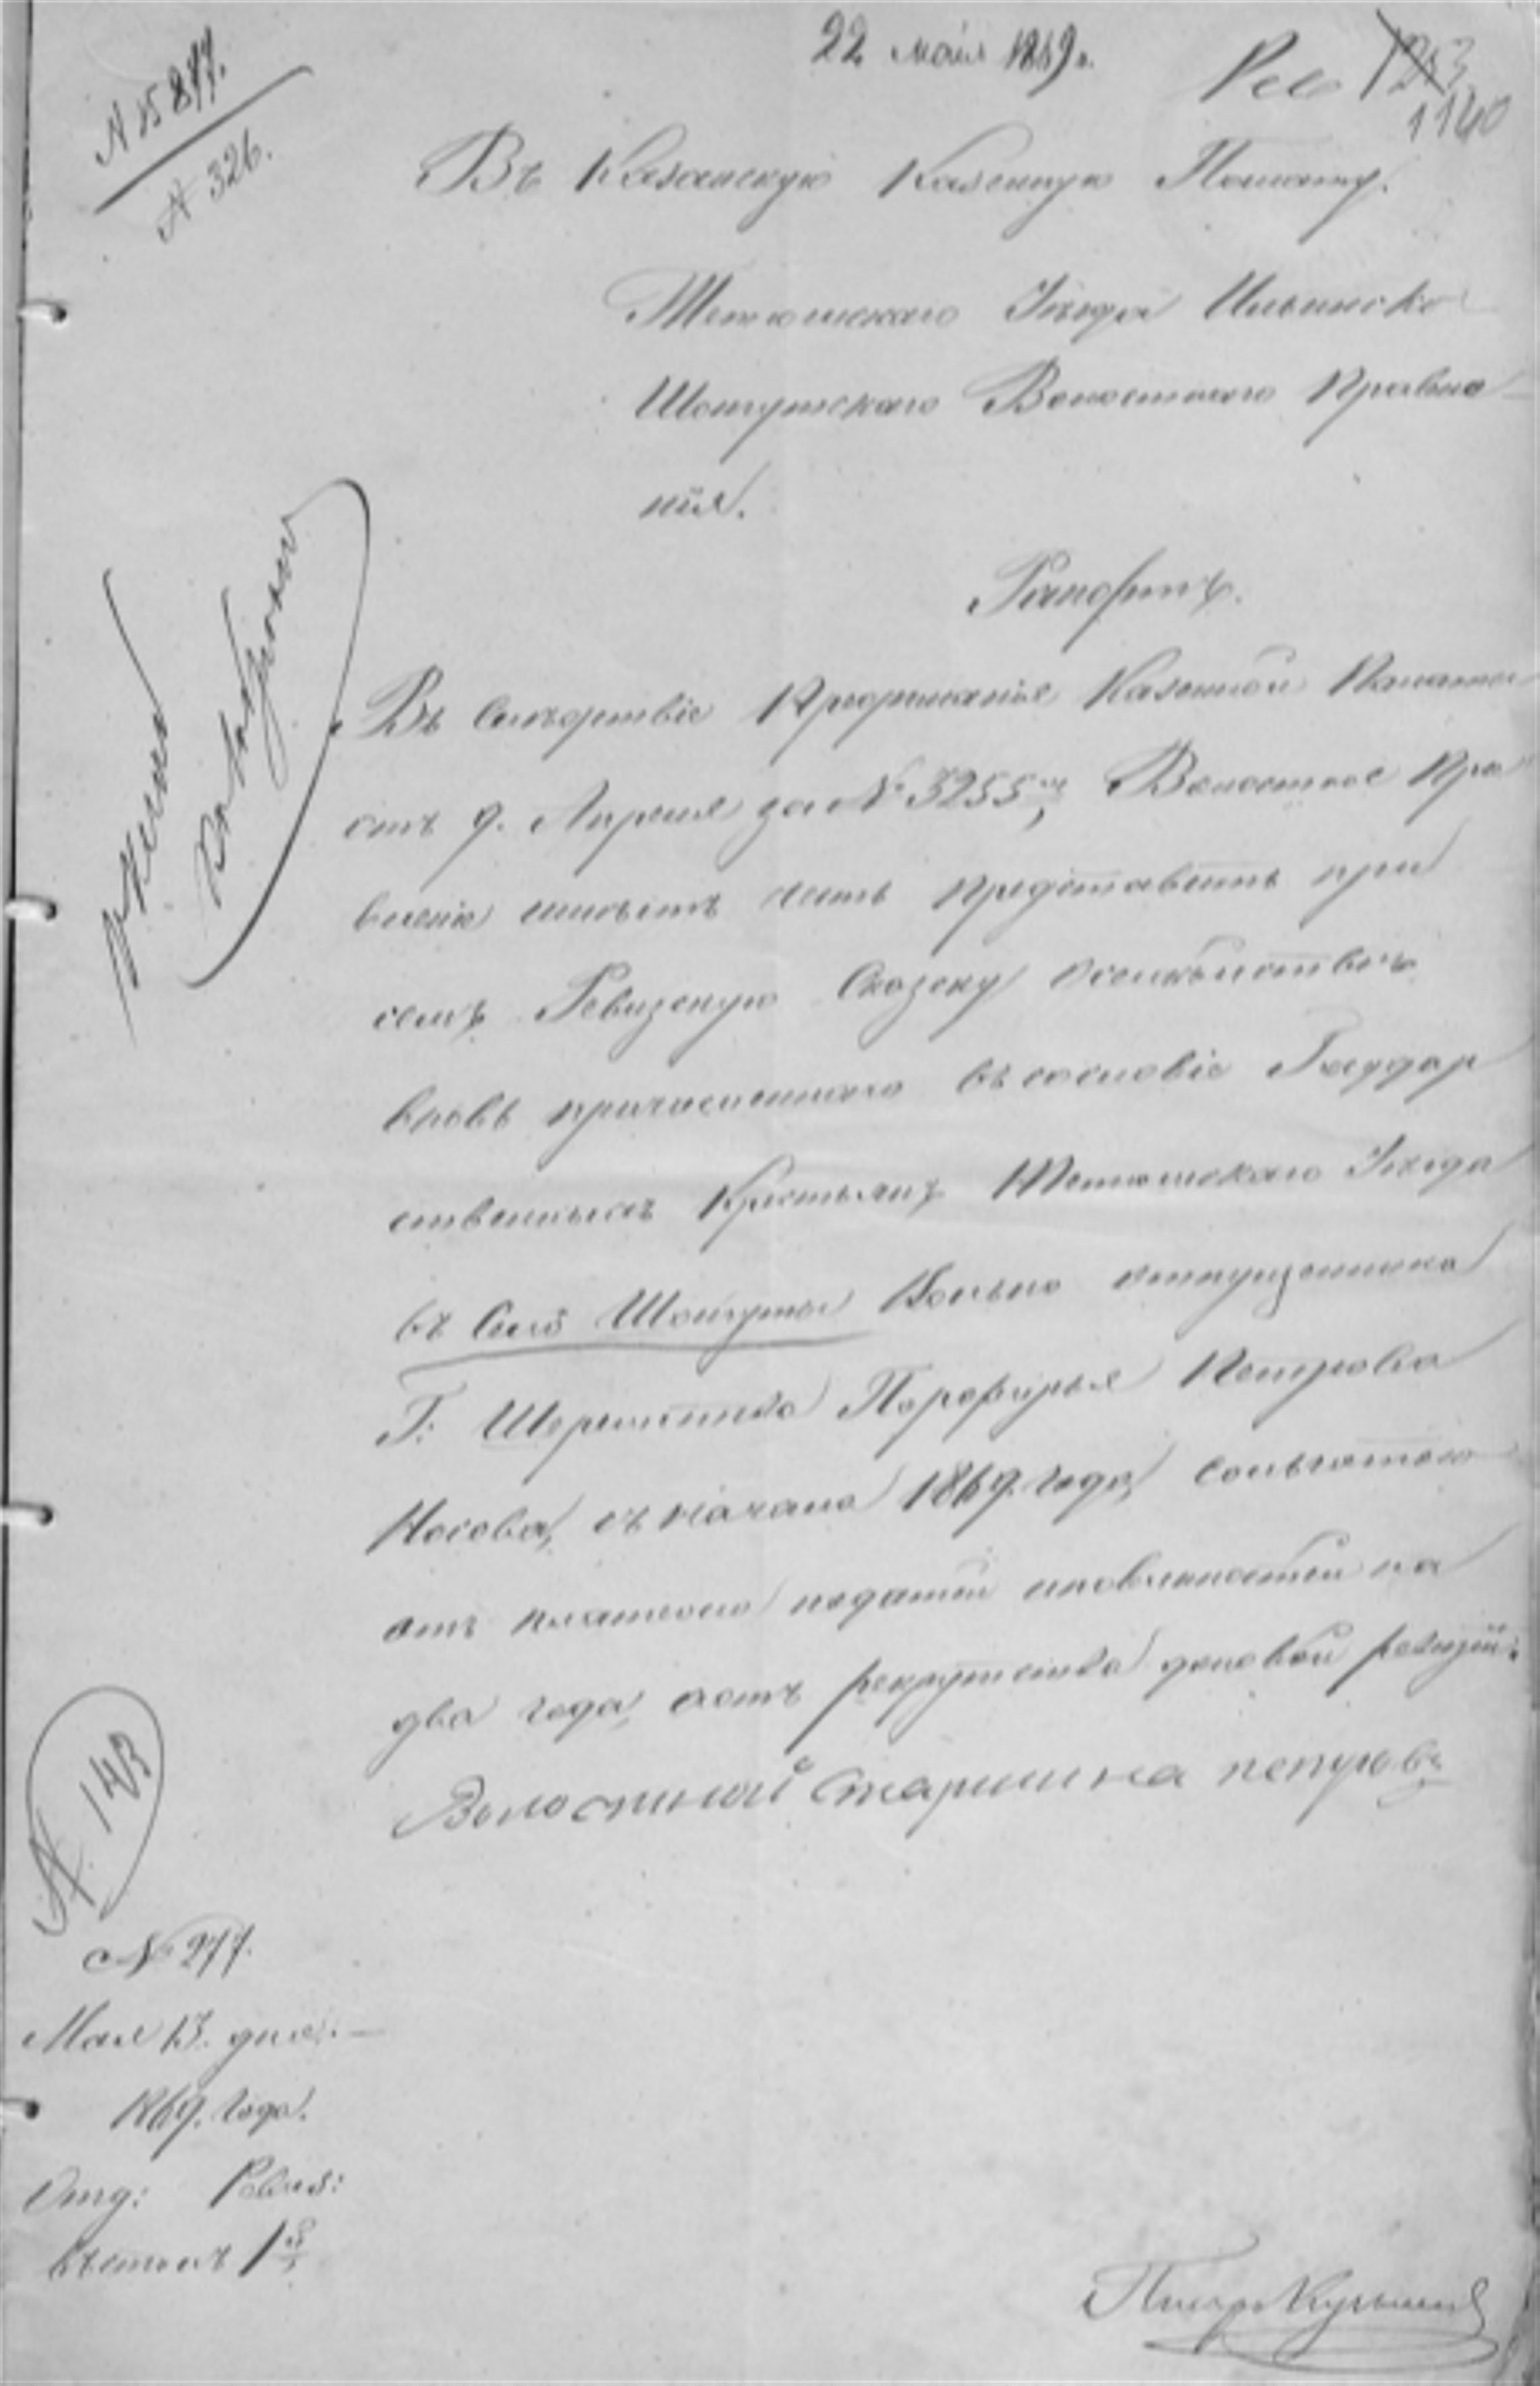 22 мая 1869 г.
1140
N 15877.
N 326.
Въ Казанскую Казенную Палату.
Тетюшскаго Уѣзда Ильинско
Шонгутскаго Волостнаго Правле
нія.
Рапортъ.
Въ Слѣдствіе Предписанія Казенной Палаты
отъ 9. Апреля за № 3255м, Волостное Пра
вленіе имѣетъ честь представить при
семъ Ревизскую Сказку о семѣйствѣ
вновь причисленнаго въ сословіе Государ
ственныхъ Крестьянъ Тетюшскаго Уѣзда
въ Село Шонгуты Вольно отпущенника
Г: Шереметива Порфирья Петрова
Носова, съ начала 1869. года, сольготою
отъ платежа податей иповинностей на
два года, иотъ рекрутства доновой ревизіи.
Волостной Старшина петровъ
N. 143
№ 277.
Мая 13. дня.
1869. Года.
Отд: Ревиз:
Столъ 1й